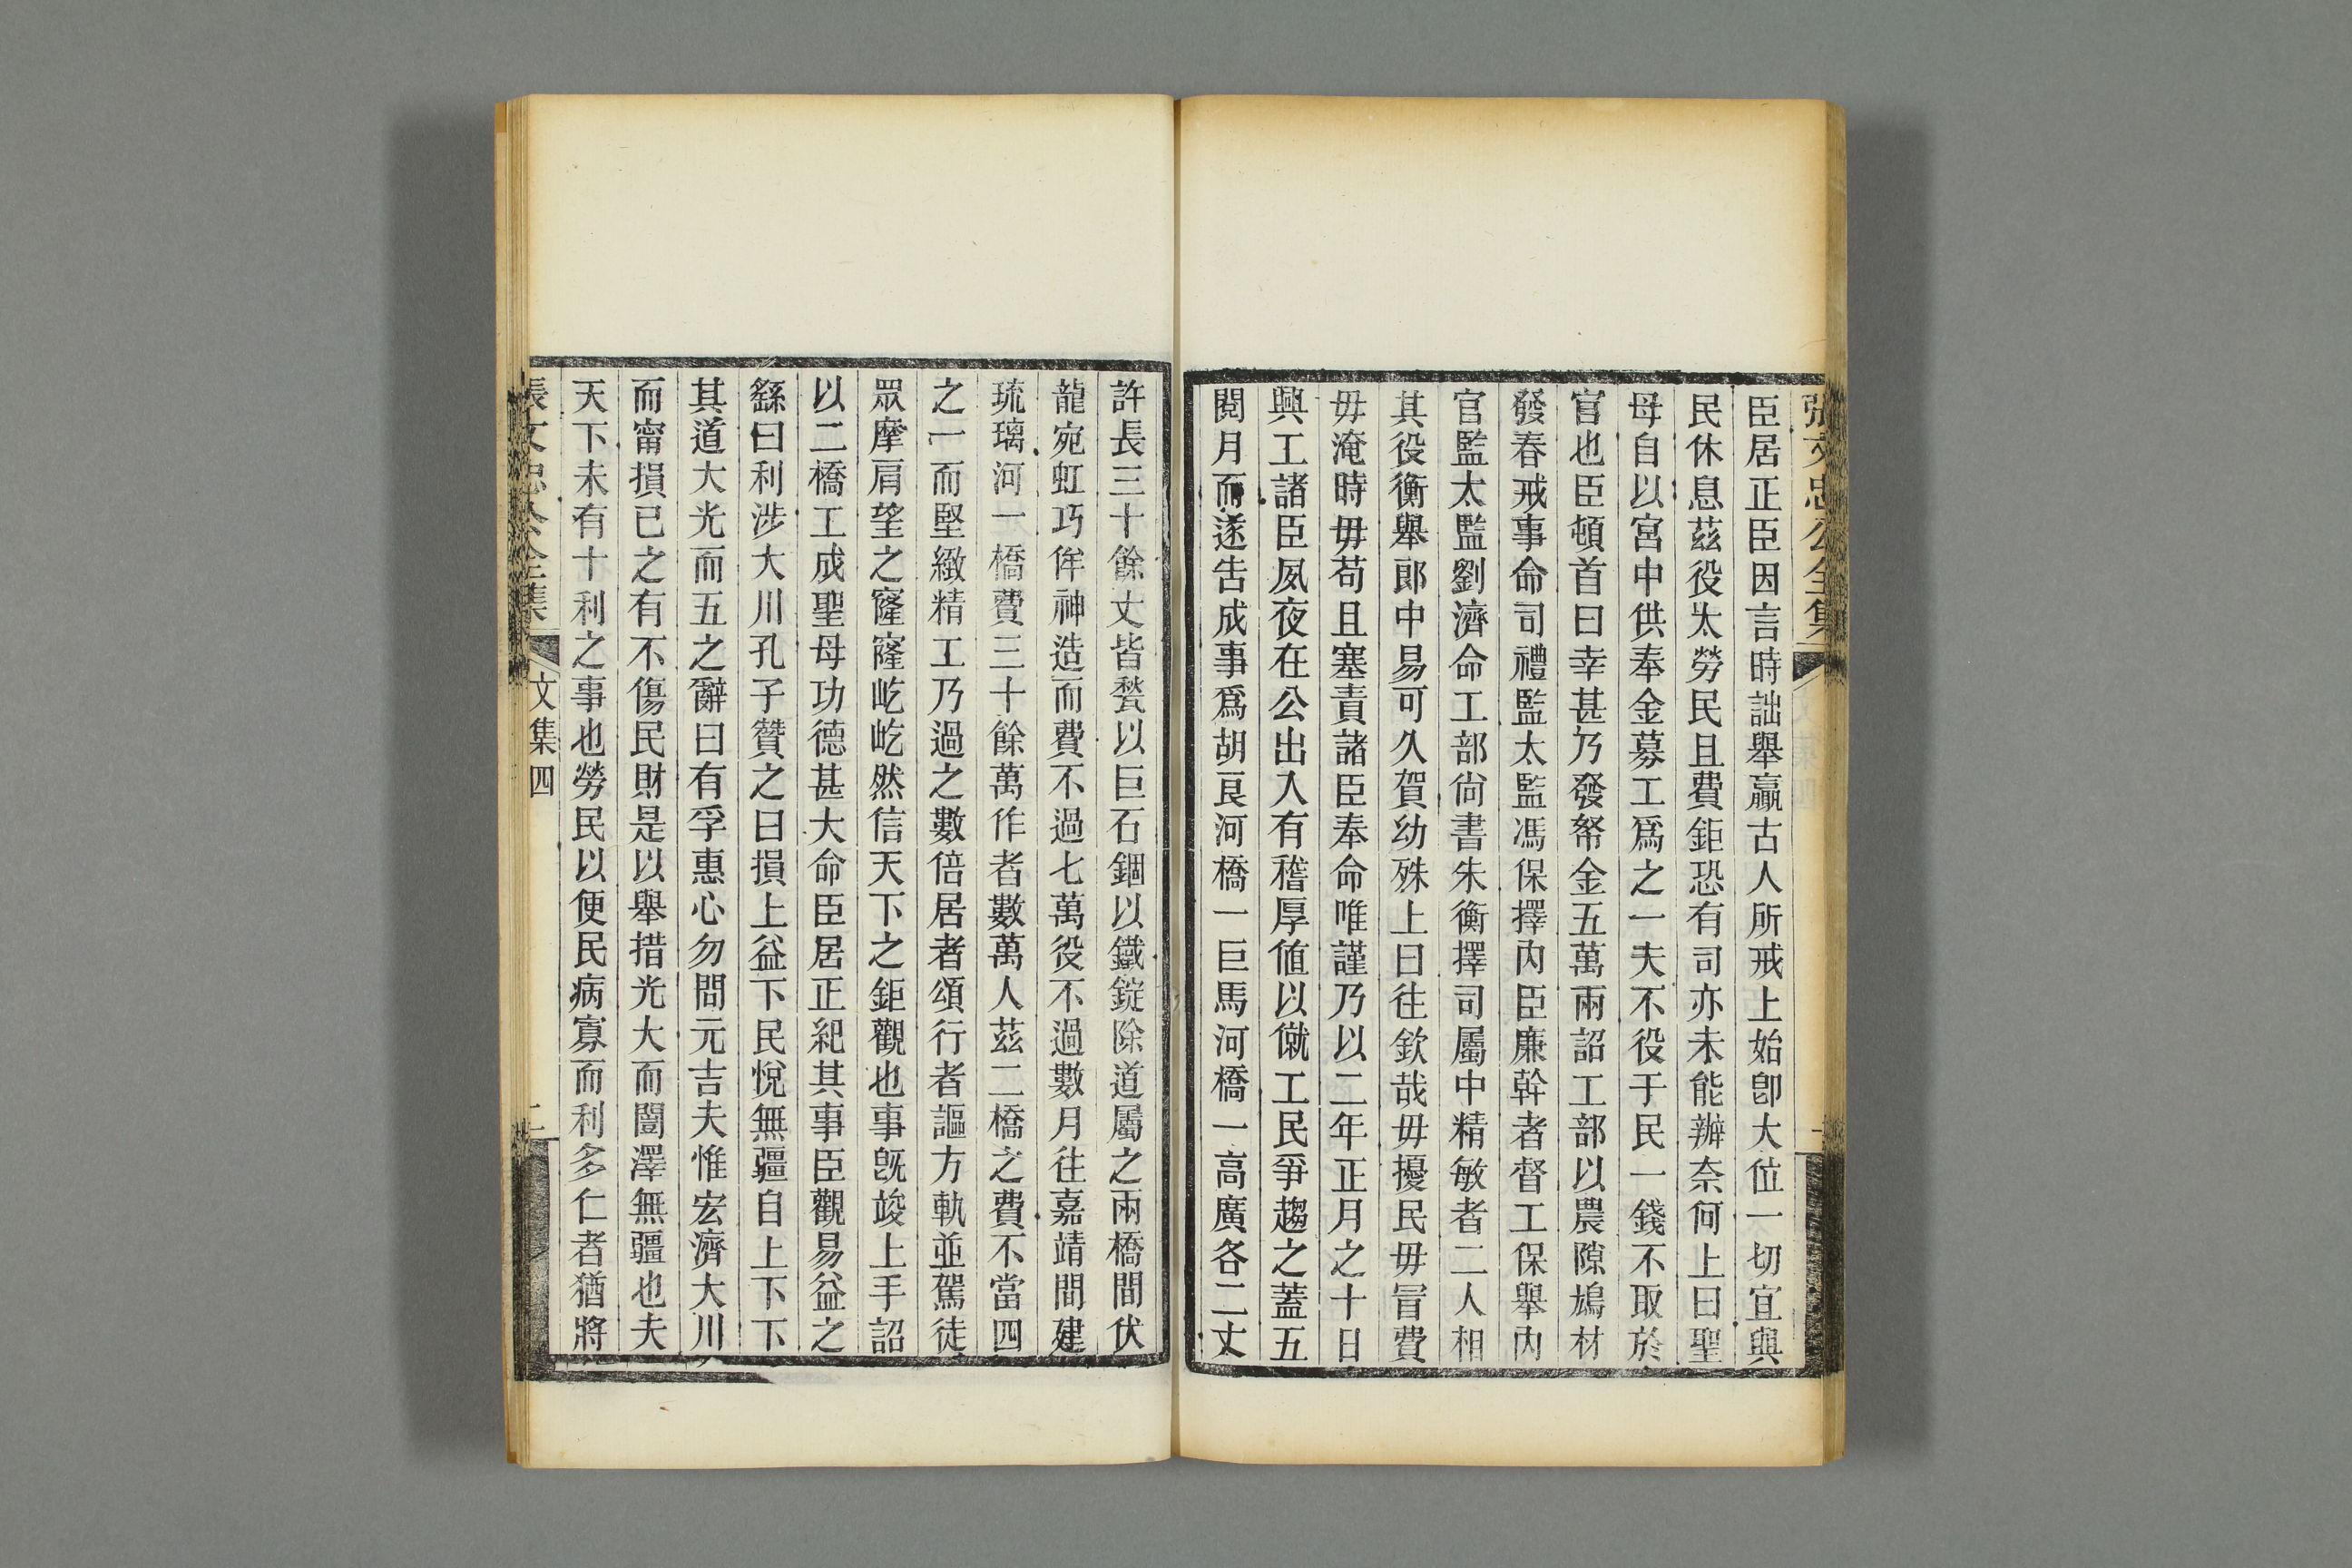 張文忠公全集
臣居正臣因言時詘舉贏古人所戒上始卽大位一切宜與
民休息茲役太勞民且費鉅恐有司亦未能辦奈何上曰聖
母自以宮中供奉金募工爲之一夫不役于民一錢不取於
官也臣頓首曰幸甚乃發帑金五萬兩詔工部以農隙鳩材
發春戒事命司禮監太監馮保擇內臣廉幹者督工保舉內
官監太監劉濟命工部尙書朱衡擇司屬中精敏者二人相
其役衡舉郎中易可久賀幼殊上曰往欽哉毋擾民毋冒費
毋淹時毋苟且塞責諸臣奉命唯謹乃以二年正月之十日
興工諸臣夙夜在公出入有稽厚値以僦工民爭趨之蓋五
閱月而遂告成事爲胡良河橋一巨馬河橋一高廣各二丈
許長三十餘丈皆甃以巨石錮以鐵錠除道屬之兩橋間伏
龍宛虹巧侔神造而費不過七萬役不過數月往嘉靖間建
琉璃河一橋費三十餘萬作者數萬人茲二橋之費不當四
之一而堅緻精工乃過之數倍居者頌行者謳方軌並駕徒
眾摩肩望之窿窿屹屹然信天下之鉅觀也事旣竣上手詔
以二橋工成聖母功德甚大命臣居正紀其事臣觀易益之
繇曰利涉大川孔子贊之曰損上益下民悅無疆自上下下
其道大光而五之辭曰有孚惠心勿問元吉夫惟宏濟大川
而甯損已之有不傷民財是以舉措光大而闓澤無疆也夫
天下未有十利之事也勞民以便民病寡而利多仁者猶將
張文忠公全集 文集四 二